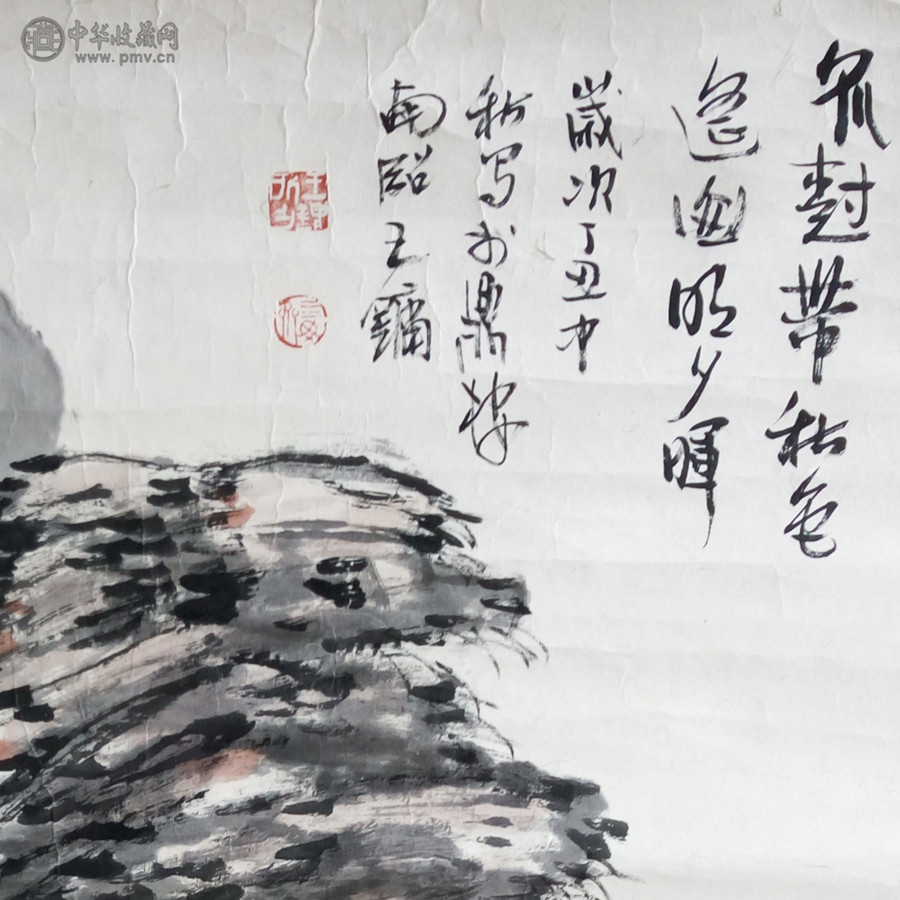 中华收藏网
www.pmv.cn
众樹帶秋色
遥明夕暉
歲次丁丑中
秋写於鼎樓
南王鏞